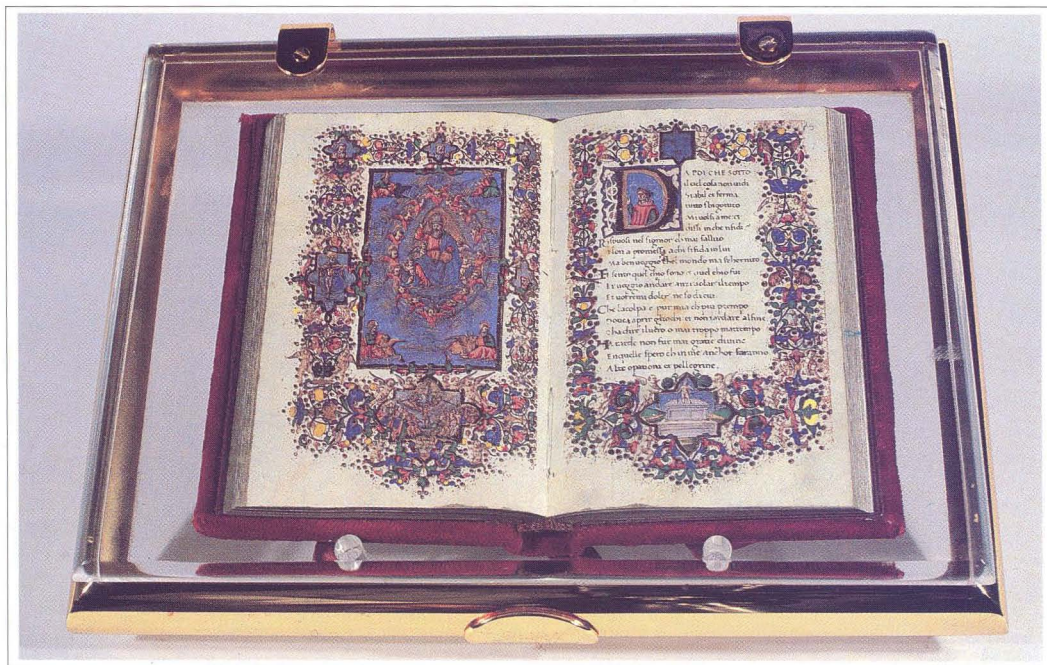 DA POI CHE SOTTO
il ciel cosa non vidi
Stabil et ferma
tutto sbigotito
Mi volsi a me et
dissi in che ti fidi
Rispuosi nel signor ch mai fallito
Non a promessa a chi si fida in lui
Ma ben veggio chel mondo ma schernito
Et sento quel chio sono et quel chio fui
Et veggio andare anzi volar il tempo
Et vorremi doler ne so di cui
Che la colpa e pur mia ch piu p tempo
Dovea aprir gliocchi et non tardare al fine
Cha dire il vero omai troppo mattempo
Ma tarde non fur mai gratie divine
En quelle spero ch in me anchor faranno
Alte operationi et pellegrine.